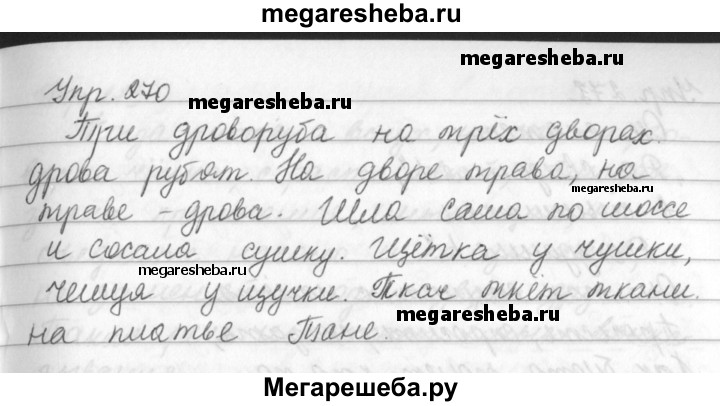 megaresheba.ru
megaresheba.ru
Упр. 270
megaresheba.ru
Три дроворуба на трёх дворах
дрова рубят. На дворе трава, на
megaresheba.ru
траве - дрова. Шла Саша по шоссе
и сосала сушку. Щётка у чушки,
megaresheba.ru
чешуя у щучки. Ткач ткёт ткани
megaresheba.ru
на платье Тане.
Мегарешеба.ру